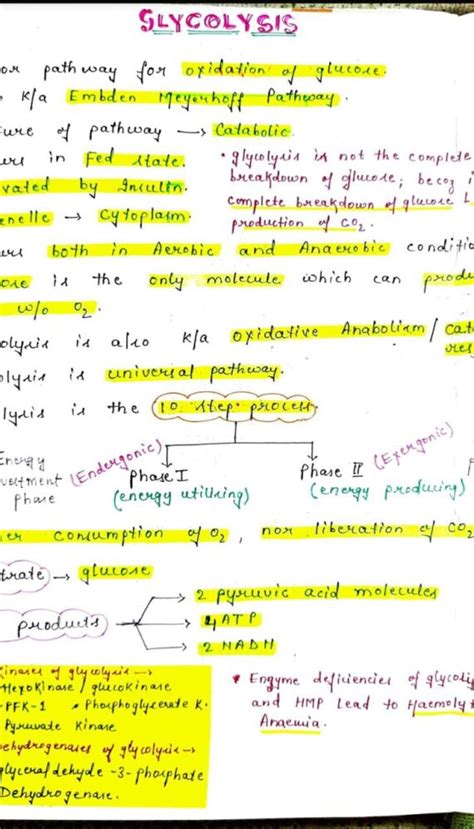 GLYCOLYSIS
or pathway for oxidation of glucose.
k/a Embden Meyerhoff Pathway.
ure of pathway → Catabolic.
urs in Fed state.
vated by Insulin.
enelle → Cytoplasm.
• glycolysis is not the complete
breakdown of glucose; becoz i
complete breakdown of glucose L
production of CO2.
urs both in Aerobic and Anaerobic conditio
ose is the only molecule which can produ
w/o O2.
olysis is also k/a oxidative Anabolism / cat
res
olysis is universal pathway.
lysis is the 10. step process.
Energy
vestment
phase
(Endergonic)
Phase I
(energy utilising)
Phase II
(Exergonic)
(energy producing)
er consumption of O2, nor liberation of CO2
trate → glucose
products
→ 2 pyruvic acid molecules
→ 4 ATP
→ 2 NADH
kinases of glycolysis →
Hexokinase / glucokinase
PFK-1 • Phosphoglycerate K.
Pyruvate Kinase
Dehydrogenases of glycolysis →
glyceraldehyde-3-phosphate
Dehydrogenase.
* Engyme deficiencies of glycoly
and HMP Lead to Haemolyt
Anaemia.